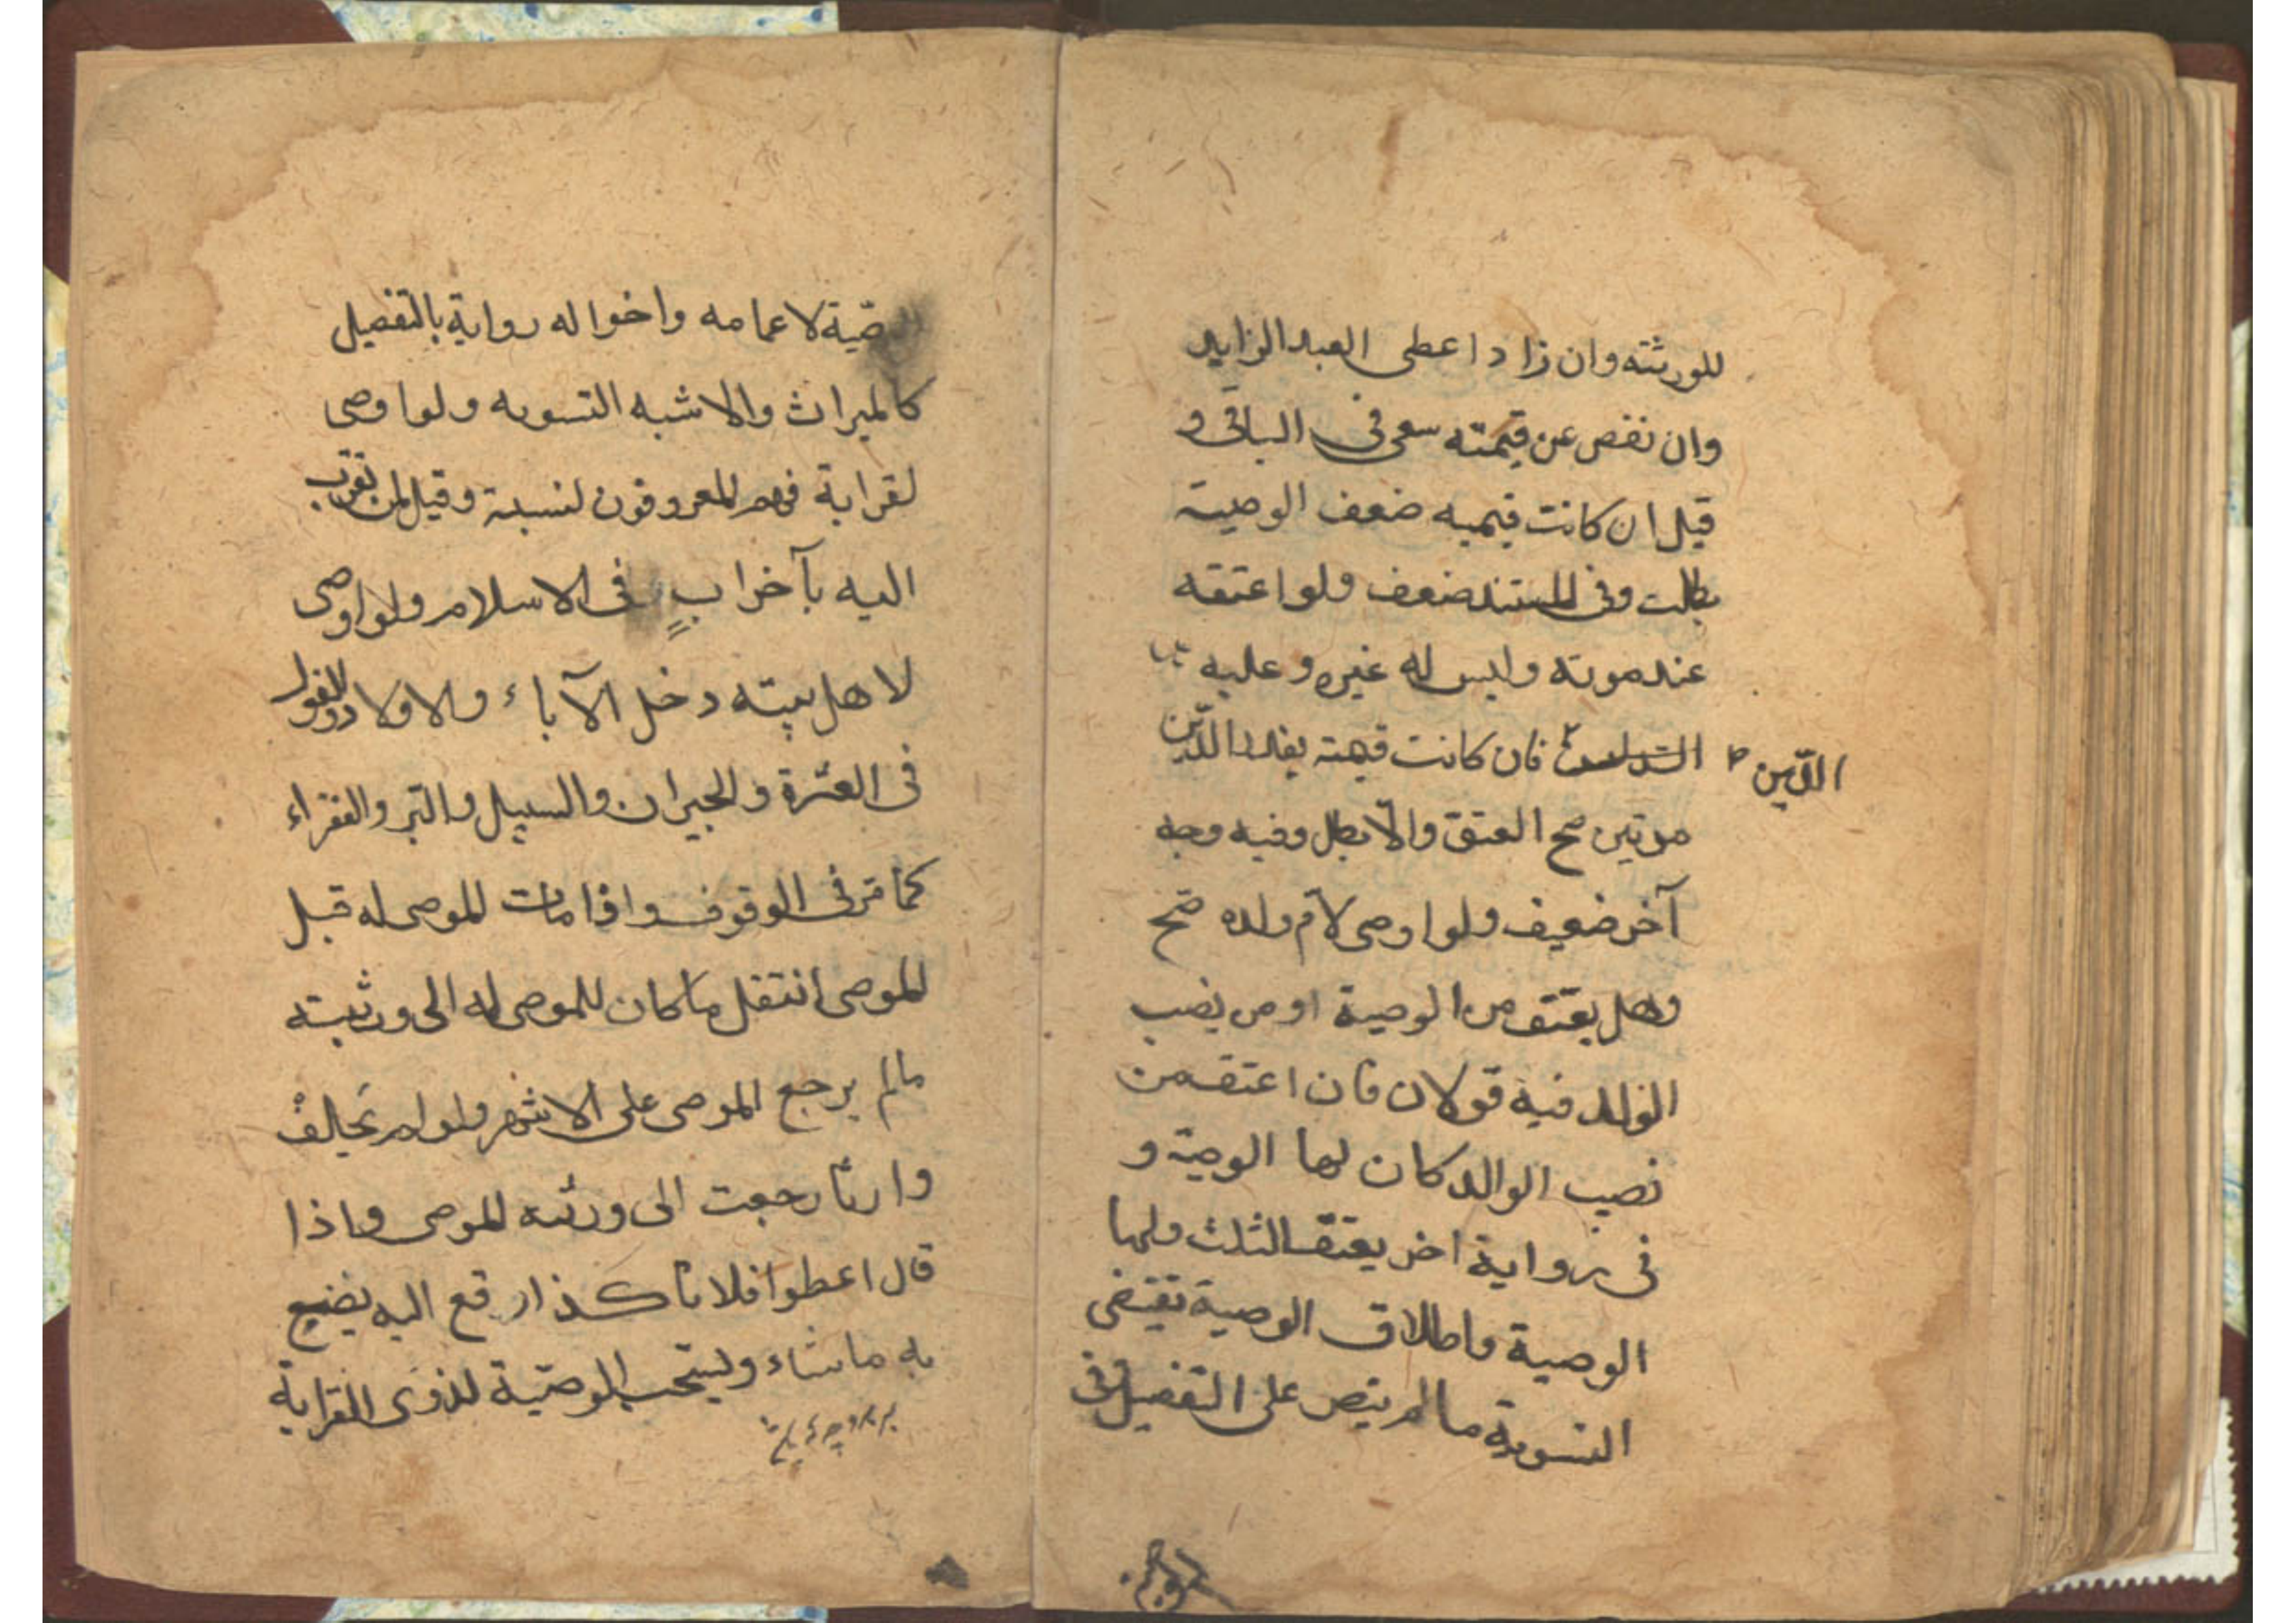 للورثته وان زاد اعطى العبد الزايد
وان نقص عن قيمته سعى فى الباقى و
قيل ان كانت قيميه ضعف الوصية
بطلت وفى المستند ضعف ولو اعتقه
عند موته وليس له غيره وعليه
فان كانت قيمته بقدر الدّين
الدّين
مرتين صح العتق والّا بطل وفيه وجه
آخر ضعيف ولو اوصى لامّ ولده صّح
وهل يعتق من الوصية او من نصب
الولد فيه قولان فان اعتق من
نصيب الوالد كان لها الوصية و
فى رواية اخر يعتق الثلث ولها
الوصية واطلاق الوصية تقتضى
التسوية ما لم ينص على التفضيل وفى
الوصّية لاعمامه واخواله رواية بالتفضيل
كالميراث والاشبه التسويه ولو اوصى
لقرابة فهم المعروفون لنسبة وقيل لمن تقرب
اليه بآخر ابٍ فى الاسلام ولو اوصى
لاهل بيته دخل الآباء والاولاد والقول
فى العترة والجيران والسبيل والبّر والفقراء
كما مّر فى الوقوف واذا مات الموصى له قبل
الموصى انتقل ما كان للموصى له الى ورثيته
مالم يرجع الموصى على الاشهر ولو لم يَخالفْ
وارثًا رجعت الى ورثه الموصى واذا
قال اعطوا فلانًا كذا رفع اليه يضيع
به ما شاء ويستحب الوصّية لذوى القرابة